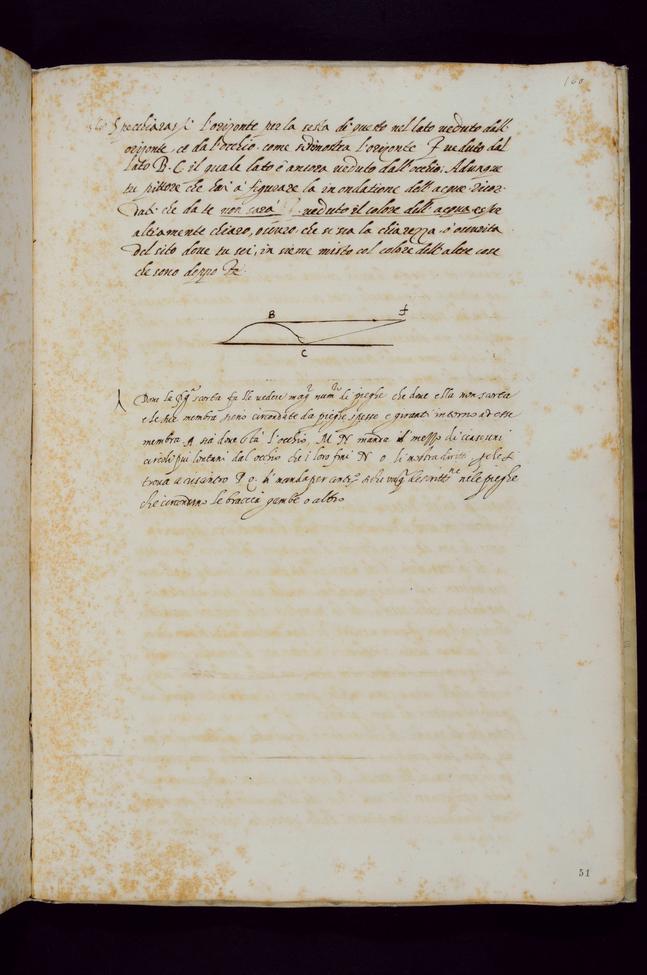 160
Specchiarassi l'orizonte per la sesta di questo nel lato ueduto dall'
orizonte, et da l'occhio come si dimostra l'orizonte F ueduto dal
lato B. C. il quale lato è ancora ueduto dall'occhio; Adunque
tu pittore che hai a figurare la inondatione dell'acque ricor-
dati che da te non sarà ueduto il colore dell'acqua essere
altramente chiaro, o scuro che si sia la chiarezza o oscurità
del sito doue tu sei, insieme misto col colore dell'altre cose
che sono doppo te
B F
C
Doue la figª scorta fa lle uedere magʳ numº di pieghe che doue ella non scorta
e le sue membra sieno circondate da pieghe spesse e giranti intorno ad esse
membra. A sia doue stà l'occhio, M N manda il mezzo di ciascuni
circoli più lontani dal occhio che i loro fini N O li mostra diritti perche si
troua a riscontro P Q. li manda per
che circondano le braccia gambe o altro
51